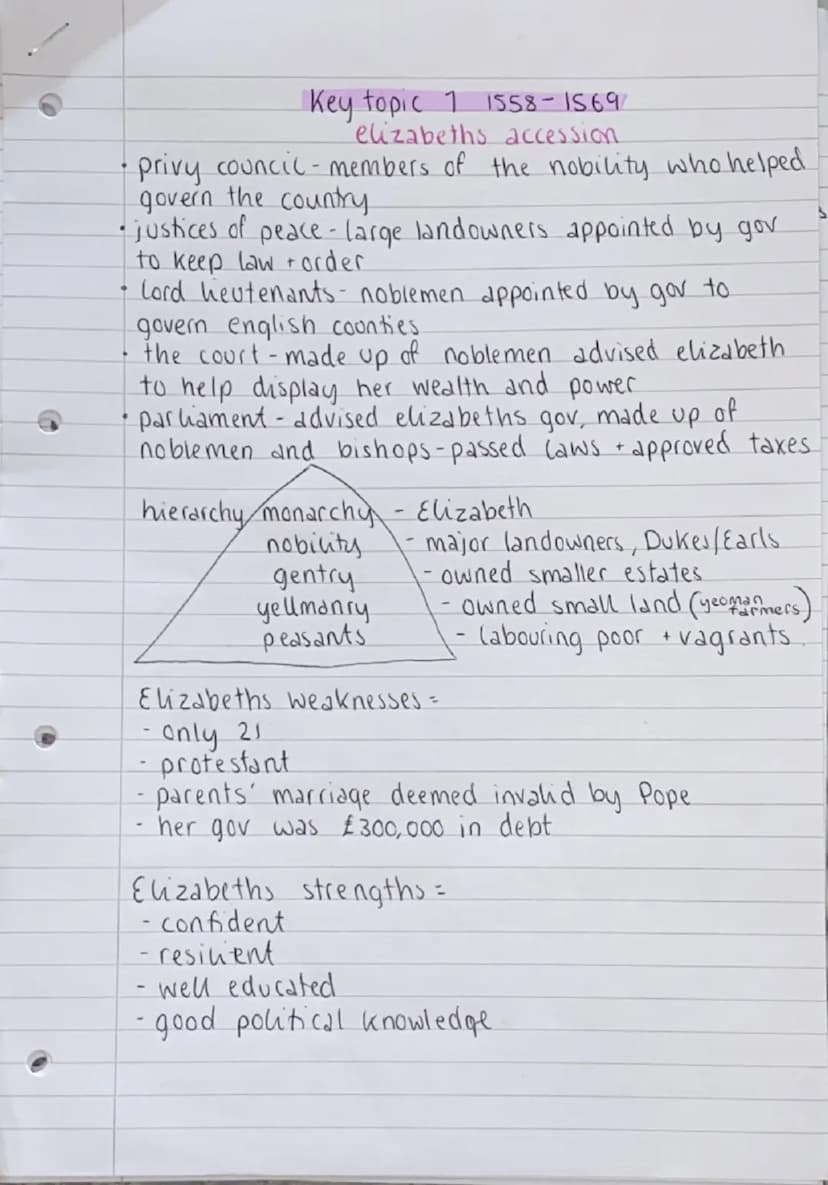 Key topic 1 1558-1569
elizabeths accession
· privy council - members of the nobility who helped
govern the country
· justices of peace - large landowners appointed by gov
to keep law + order
· lord lieutenants - noblemen appointed by gov to
govern english counties
· the court - made up of noblemen advised elizabeth
to help display her wealth and power
· parliament - advised elizabeths gov, made up of
noblemen and bishops - passed laws + approved taxes
hierarchy monarchy - Elizabeth
nobility - major landowners, Dukes/Earls
gentry - owned smaller estates
yellmanry - owned small land (yeoman farmers)
peasants - labouring poor + vagrants
Elizabeths weaknesses =
- only 21
- protestant
- parents' marriage deemed invalid by Pope
- her gov was £300,000 in debt
Elizabeths strengths =
- confident
- resilient
- well educated
- good political knowledge